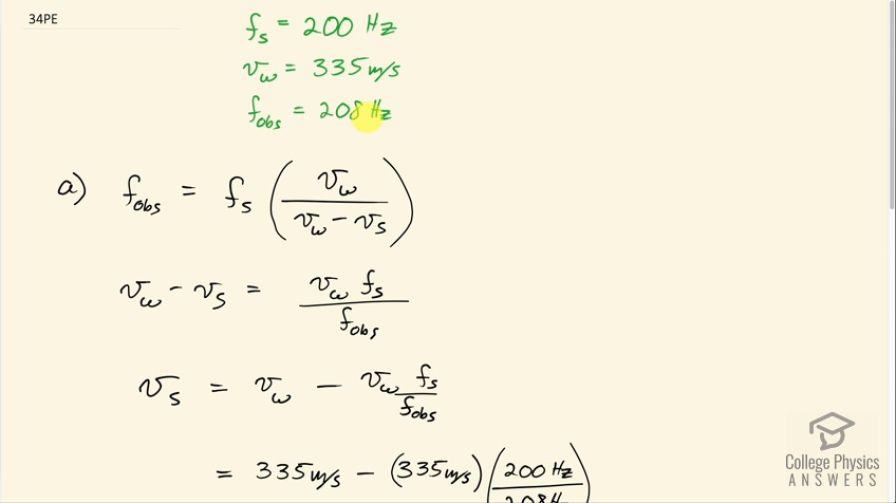 34PE
f_s = 200 Hz
v_w = 335 m/s
f_obs = 208 Hz
a) f_obs = f_s ( v_w / (v_w - v_s) )
v_w - v_s = v_w f_s / f_obs
v_s = v_w - v_w f_s / f_obs
= 335 m/s - (335 m/s) ( 200 Hz / 208 H
College Physics
ANSWERS